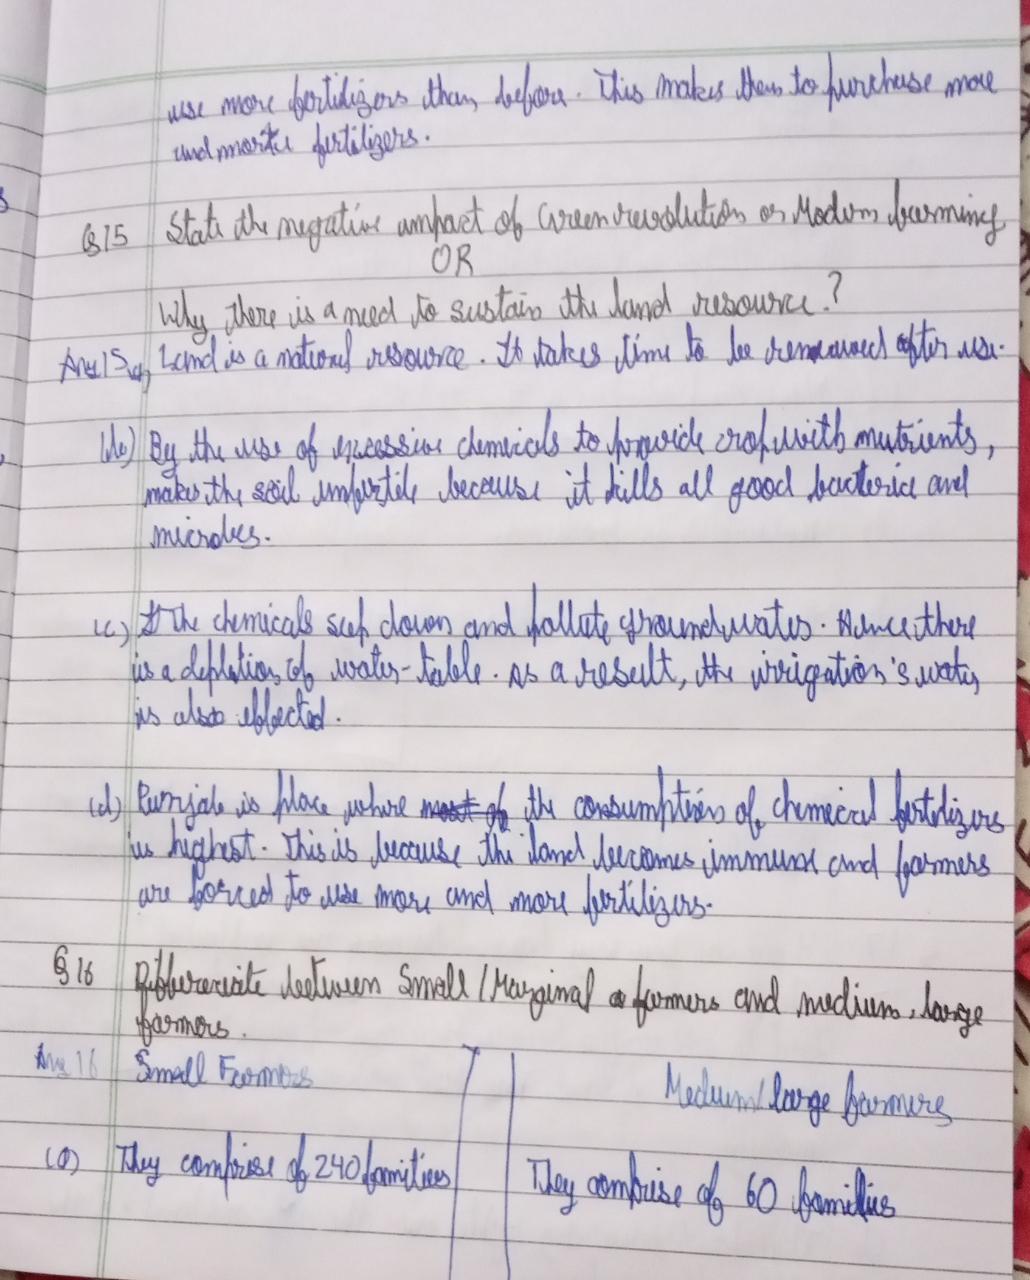 use more fertilizers than before. This makes them to purchase more
and more fertilizers.
Q15 State the negative impact of Green revolution or Modern farming
OR
Why there is a need to sustain the land resource?
Ans15 a) Land is a natural resource. It takes time to be renewed after use.
(b) By the use of excessive chemicals to provide crop with nutrients,
makes the soil unfertile because it kills all good bacteria and
microbes.
(c) The chemicals seep down and pollute groundwater. Hence there
is a depletion of water-table. As a result, the irrigation's water
is also effected.
(d) Punjab is place where most of the consumption of chemical fertilizers
is highest. This is because the land becomes immune and farmers
are forced to use more and more fertilizers.
Q16 Differenciate between Small/Marginal farmers and medium, large
farmers.
Ans16 Small Farmers Medium/large farmers
(a) They comprise of 240 families They comprise of 60 families